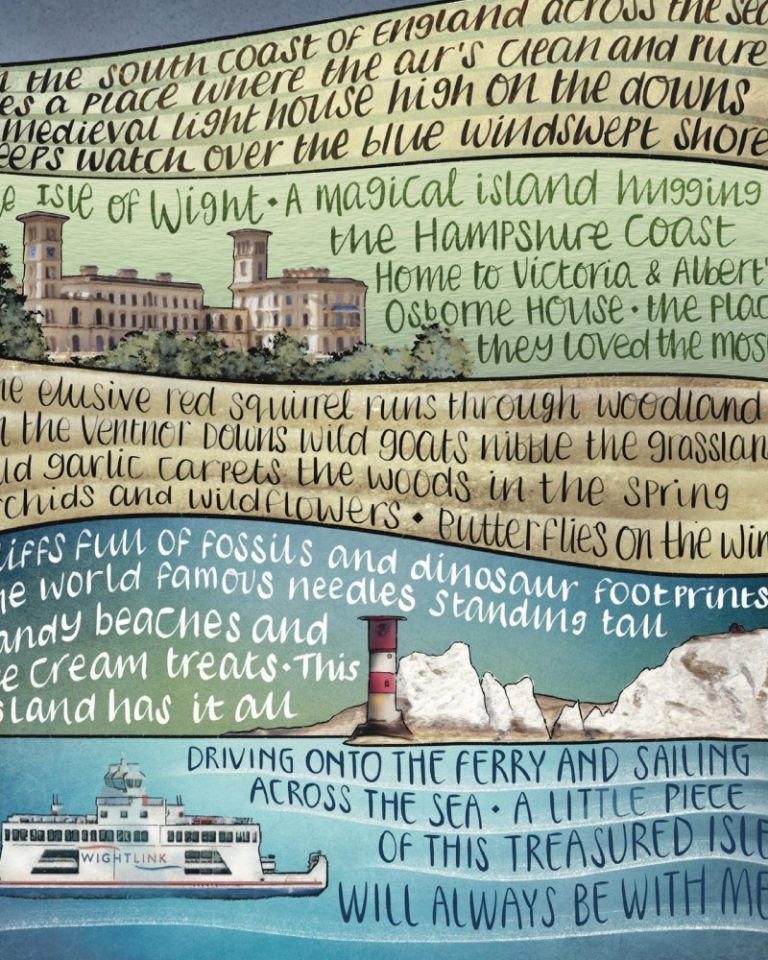 n the south coast of England across the sea
es a place where the air's clean and pure
medieval lighthouse high on the downs
eeps watch over the blue windswept shore
e Isle of Wight • A magical island hugging
the Hampshire Coast
Home to Victoria & Albert'
Osborne House • the plac
they loved the mos
he elusive red squirrel runs through woodland
n the Ventnor Downs wild goats nibble the grasslan
ild garlic carpets the woods in the spring
rchids and wildflowers • Butterflies on the win
liffs full of fossils and dinosaur footprints
he world famous needles standing tall
andy beaches and
e cream treats • This
sland has it all
DRIVING ONTO THE FERRY AND SAILING
ACROSS THE SEA • A LITTLE PIECE
OF THIS TREASURED ISLE
WIGHTLINK
WILL ALWAYS BE WITH ME